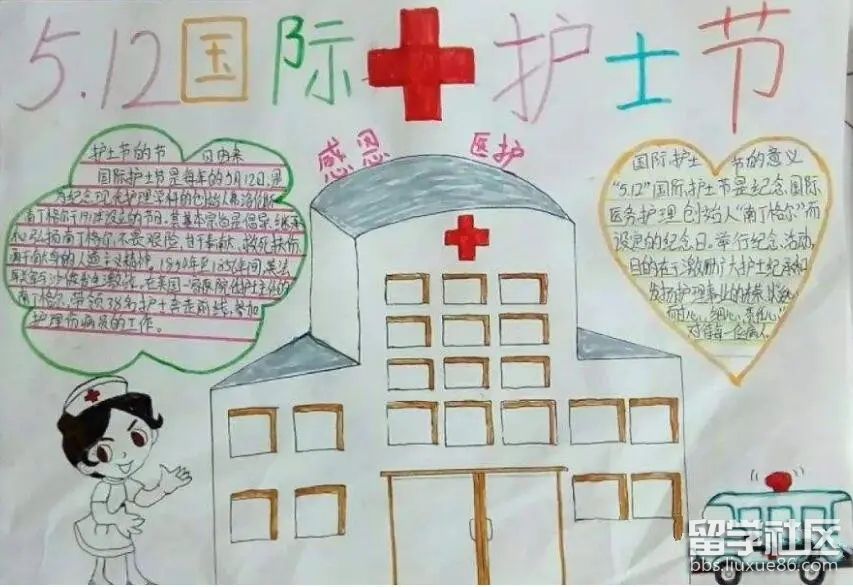 5.12国际护士节
感恩 医护
护士节的节 日由来
国际护士节是每年的5月12日,是
为纪念现代护理学科的创始人弗洛伦斯
南丁格尔于1912年设立的节日,其基本宗旨是倡导,继承
和弘扬南丁格尔不畏艰险,甘于奉献,救死扶伤
勇于献身的人道主义精神。1854年至1856年间,英法
南丁格尔,带领38名护士奔走前线,参加
护理伤病员的工作。
国际护士 节的意义
“5.12”国际护士节是纪念国际
医务护理创始人“南丁格尔”而
设立的纪念日。举行纪念活动,
目的在于激励广大护士纪承和
发扬护理事业的
耐心,细心,责任心
对待每一位病人
留学社区
bbs.liuxue86.com